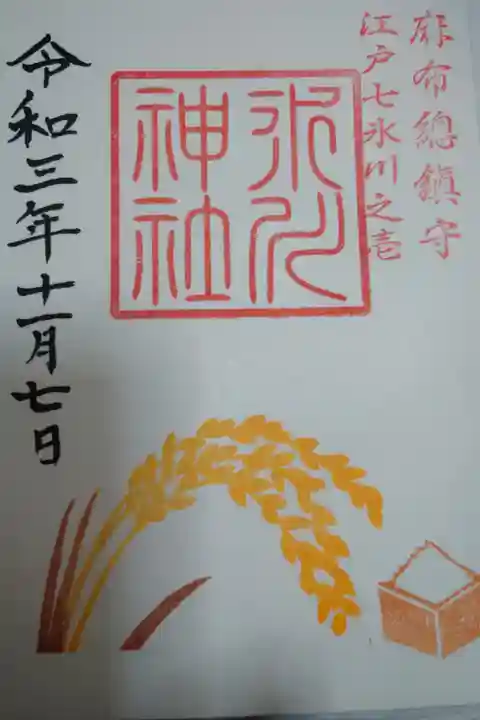 麻布總鎮守
江戸七氷川之壱
氷川
神社
令和三年十一月七日